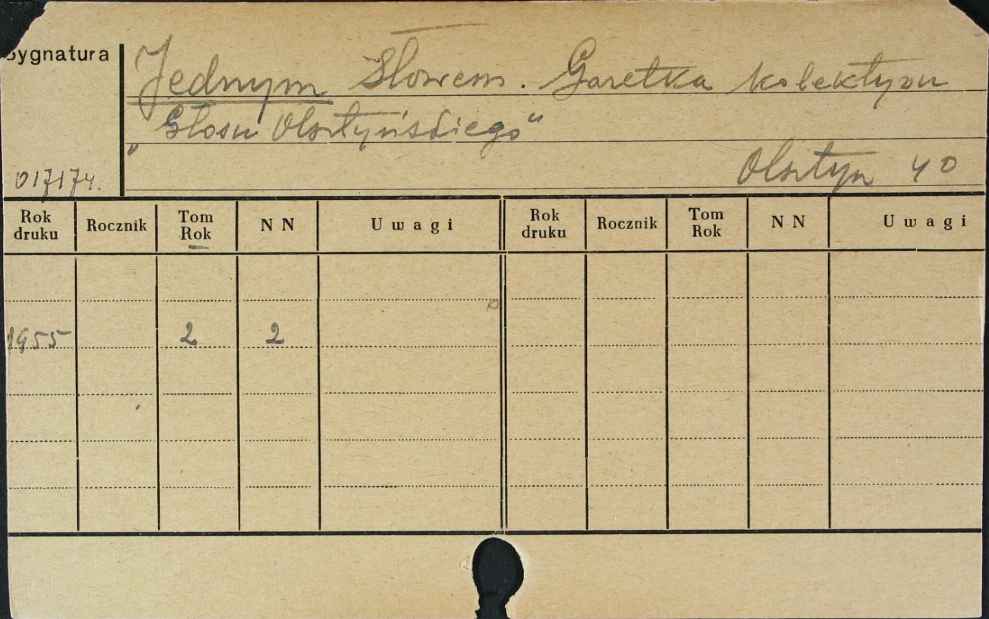 Sygnatura
Jednym Słowem. Gazetka kolektywu
"Głosu Olsztyńskiego"
Olsztyn 40
017174.
Rok druku Rocznik Tom Rok NN Uwagi Rok druku Rocznik Tom Rok NN Uwagi
1955 2 2